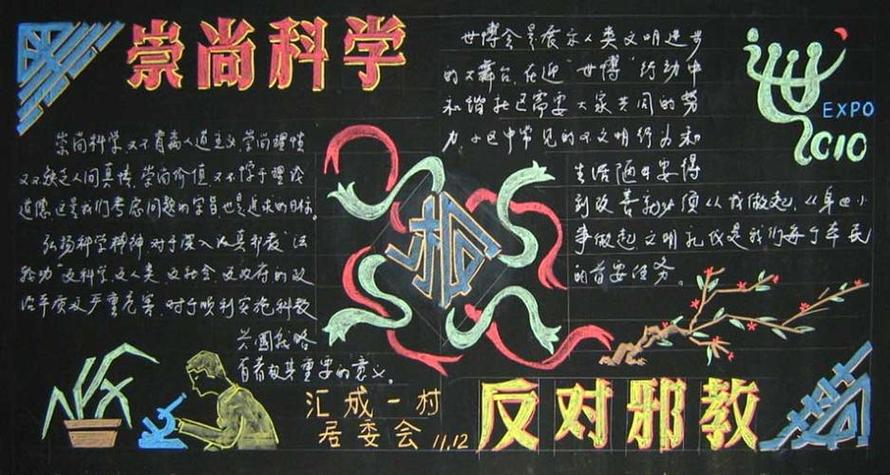 崇尚科学
崇尚科学又不背离人道主义,崇尚理性
又不缺乏人间真情,崇尚价值又不悖于理论
道德,这是我们考虑问题的宗旨也是追求的目标。
弘扬科学精神对于深入认真邪教"法
轮功"反科学、反人类、反社会、反政府的政
治本质及严重危害,对于顺利实施科教
兴国战略
有着极其重要的意义。
汇成一村
居委会 11.12
世博会是展示人类文明进步
的大舞台,在迎"世博"行动中
和谐社区需要大家共同的努
力,小区中常见的不文明行为和
生活陋
得
到改善就必须从我做起,从身边小
事做起,文明礼仪是我们每个市民
的首要任务。
EXPO
2010
反对邪教